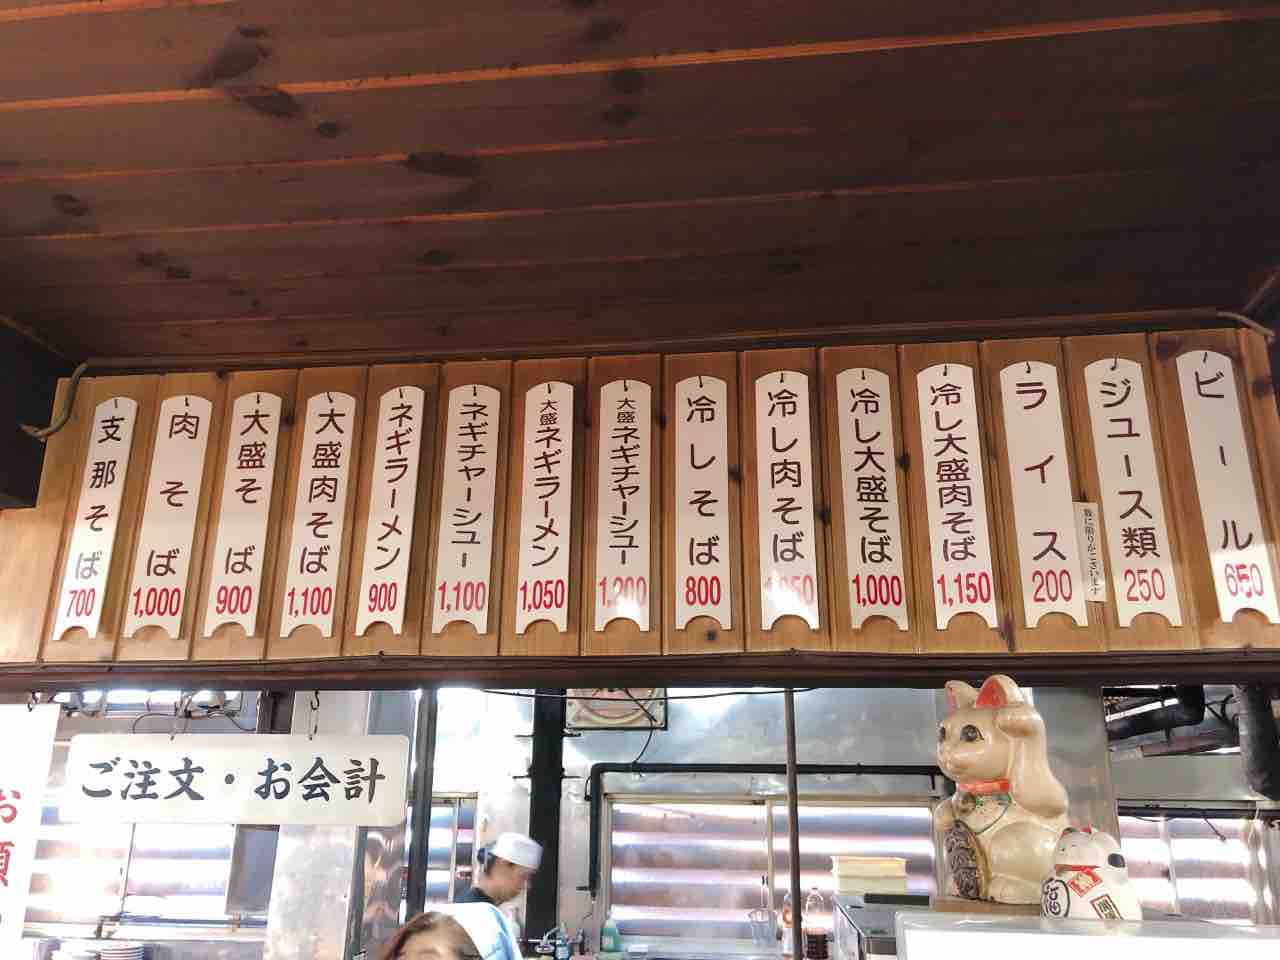 支那そば
700
肉そば
1,000
大盛そば
900
大盛肉そば
1,100
ネギラーメン
900
ネギチャーシュー
1,100
大盛ネギラーメン
1,050
大盛ネギチャーシュー
1,200
冷しそば
800
冷し肉そば
冷し大盛そば
1,000
冷し大盛肉そば
1,150
ライス
200
数に限りがございます
ジュース類
250
ビール
650
ご注文・お会計
お